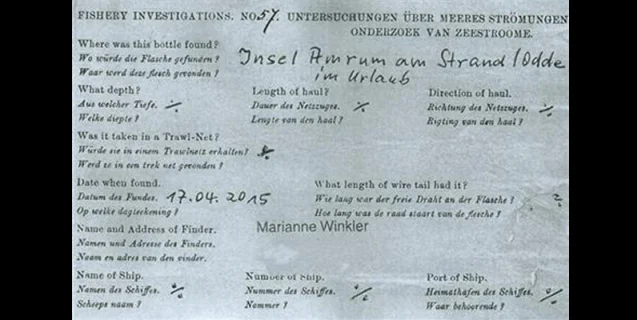 FISHERY INVESTIGATIONS. NO 57. UNTERSUCHUNGEN ÜBER MEERES STRÖMUNGEN
ONDERZOEK VAN ZEESTROOME.
Where was this bottle found?
Wo würde die Flasche gefunden?
Waar werd deze flesch gevonden?
Insel Amrum am Strand/Odde
im Urlaub
What depth?
Aus welcher Tiefe.
Welke diepte?
Length of haul?
Dauer des Netzzuges.
Lengte van den haal?
Direction of haul.
Richtung des Netzzuges.
Rigting van den haal?
Was it taken in a Trawl-Net?
Würde sie in einem Trawlnetz erhalten?
Werd ze in een trek net gevonden?
Date when found.
Datum des Fundes. 17.04.2015
Op welke dagteekening?
What length of wire tail had it?
Wie lang war der freie Draht an der Flasche? ?
Hoe lang was de raad staart van de flesche?
Name and Address of Finder.
Namen und Adresse des Finders.
Naam en adres van den vinder.
Marianne Winkler
Name of Ship.
Namen des Schiffes.
Scheeps naam?
Number of Ship.
Nummer des Schiffes.
Nommer?
Port of Ship.
Heimathafen des Schiffes.
Waar behoorende?